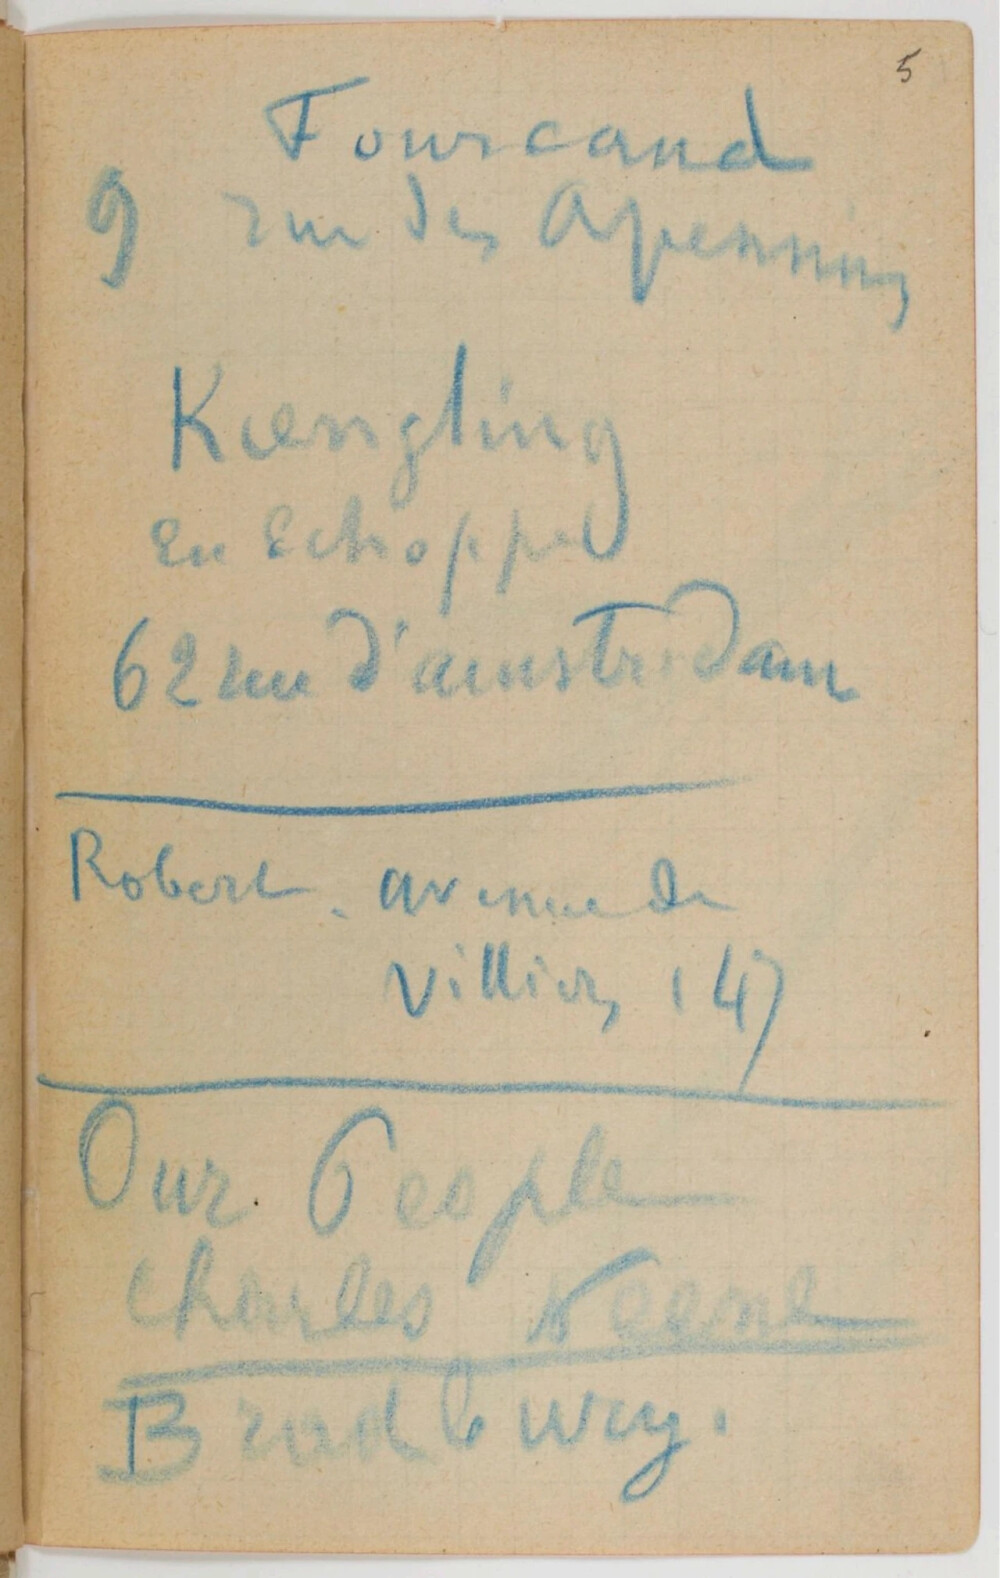 5
Fourcaud
9 rue des Apennins
Kœngling
En Echoppe
62 rue d'amstredam
Robert. avenue de
Villiers 147
Our People
Charles Keene
Bradbury.